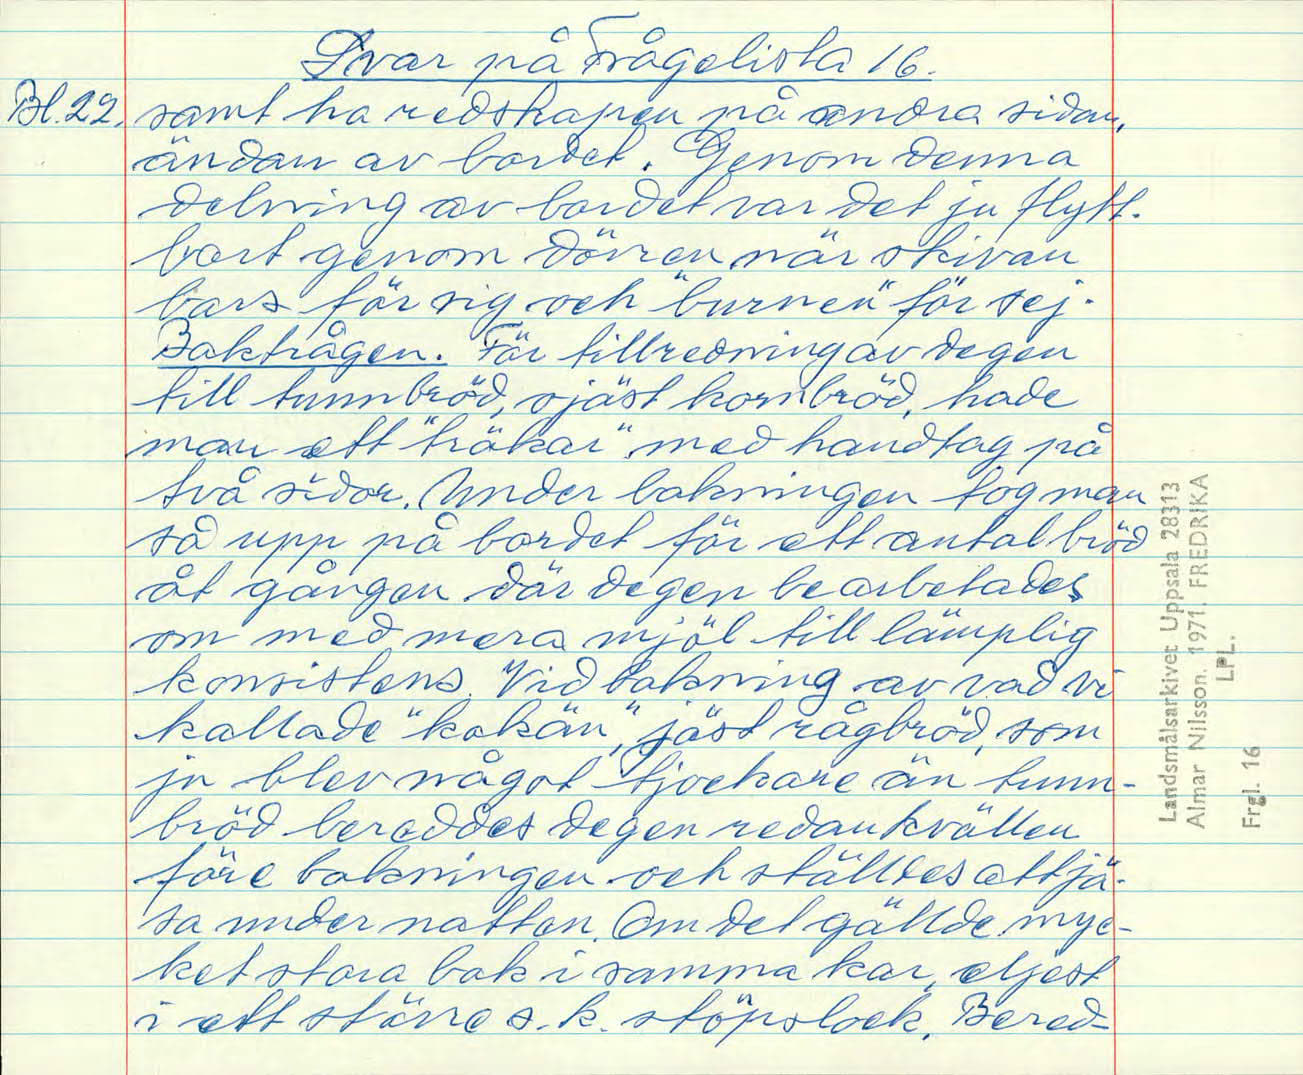 Svar på Frågelista 16.
Bl. 22. samt ha redskapen på andra sidan,
ändan av bordet. Genom denna
delning av bordet var det ju flytt-
bart genom dörren när skivan
bars för sig och "burnen" för sej.
Baktrågen. För tillredning av degen
till tunnbröd, ojäst kornbröd, hade
man ett "träkar" med handtag på
två sidor. Under bakningen tog man
så upp på bordet för ett antal bröd
åt gången där degen bearbetades
om med mera mjöl till lämplig
konsistens. Vid bakning av vad vi
kallade "kakän", jäst rågbröd, som
ju blev något tjockare än tunn-
bröd bereddes degen redan kvällen
före bakningen och ställdes att jä-
sa under natten. Om det gällde myc-
ket stora bak i samma kar, eljest
i ett större s.k. stöpslock. Bered-
Landsmålsarkivet Uppsala 28313
Almar Nilsson. 1971. FREDRIKA
LPL.
Frgl. 16